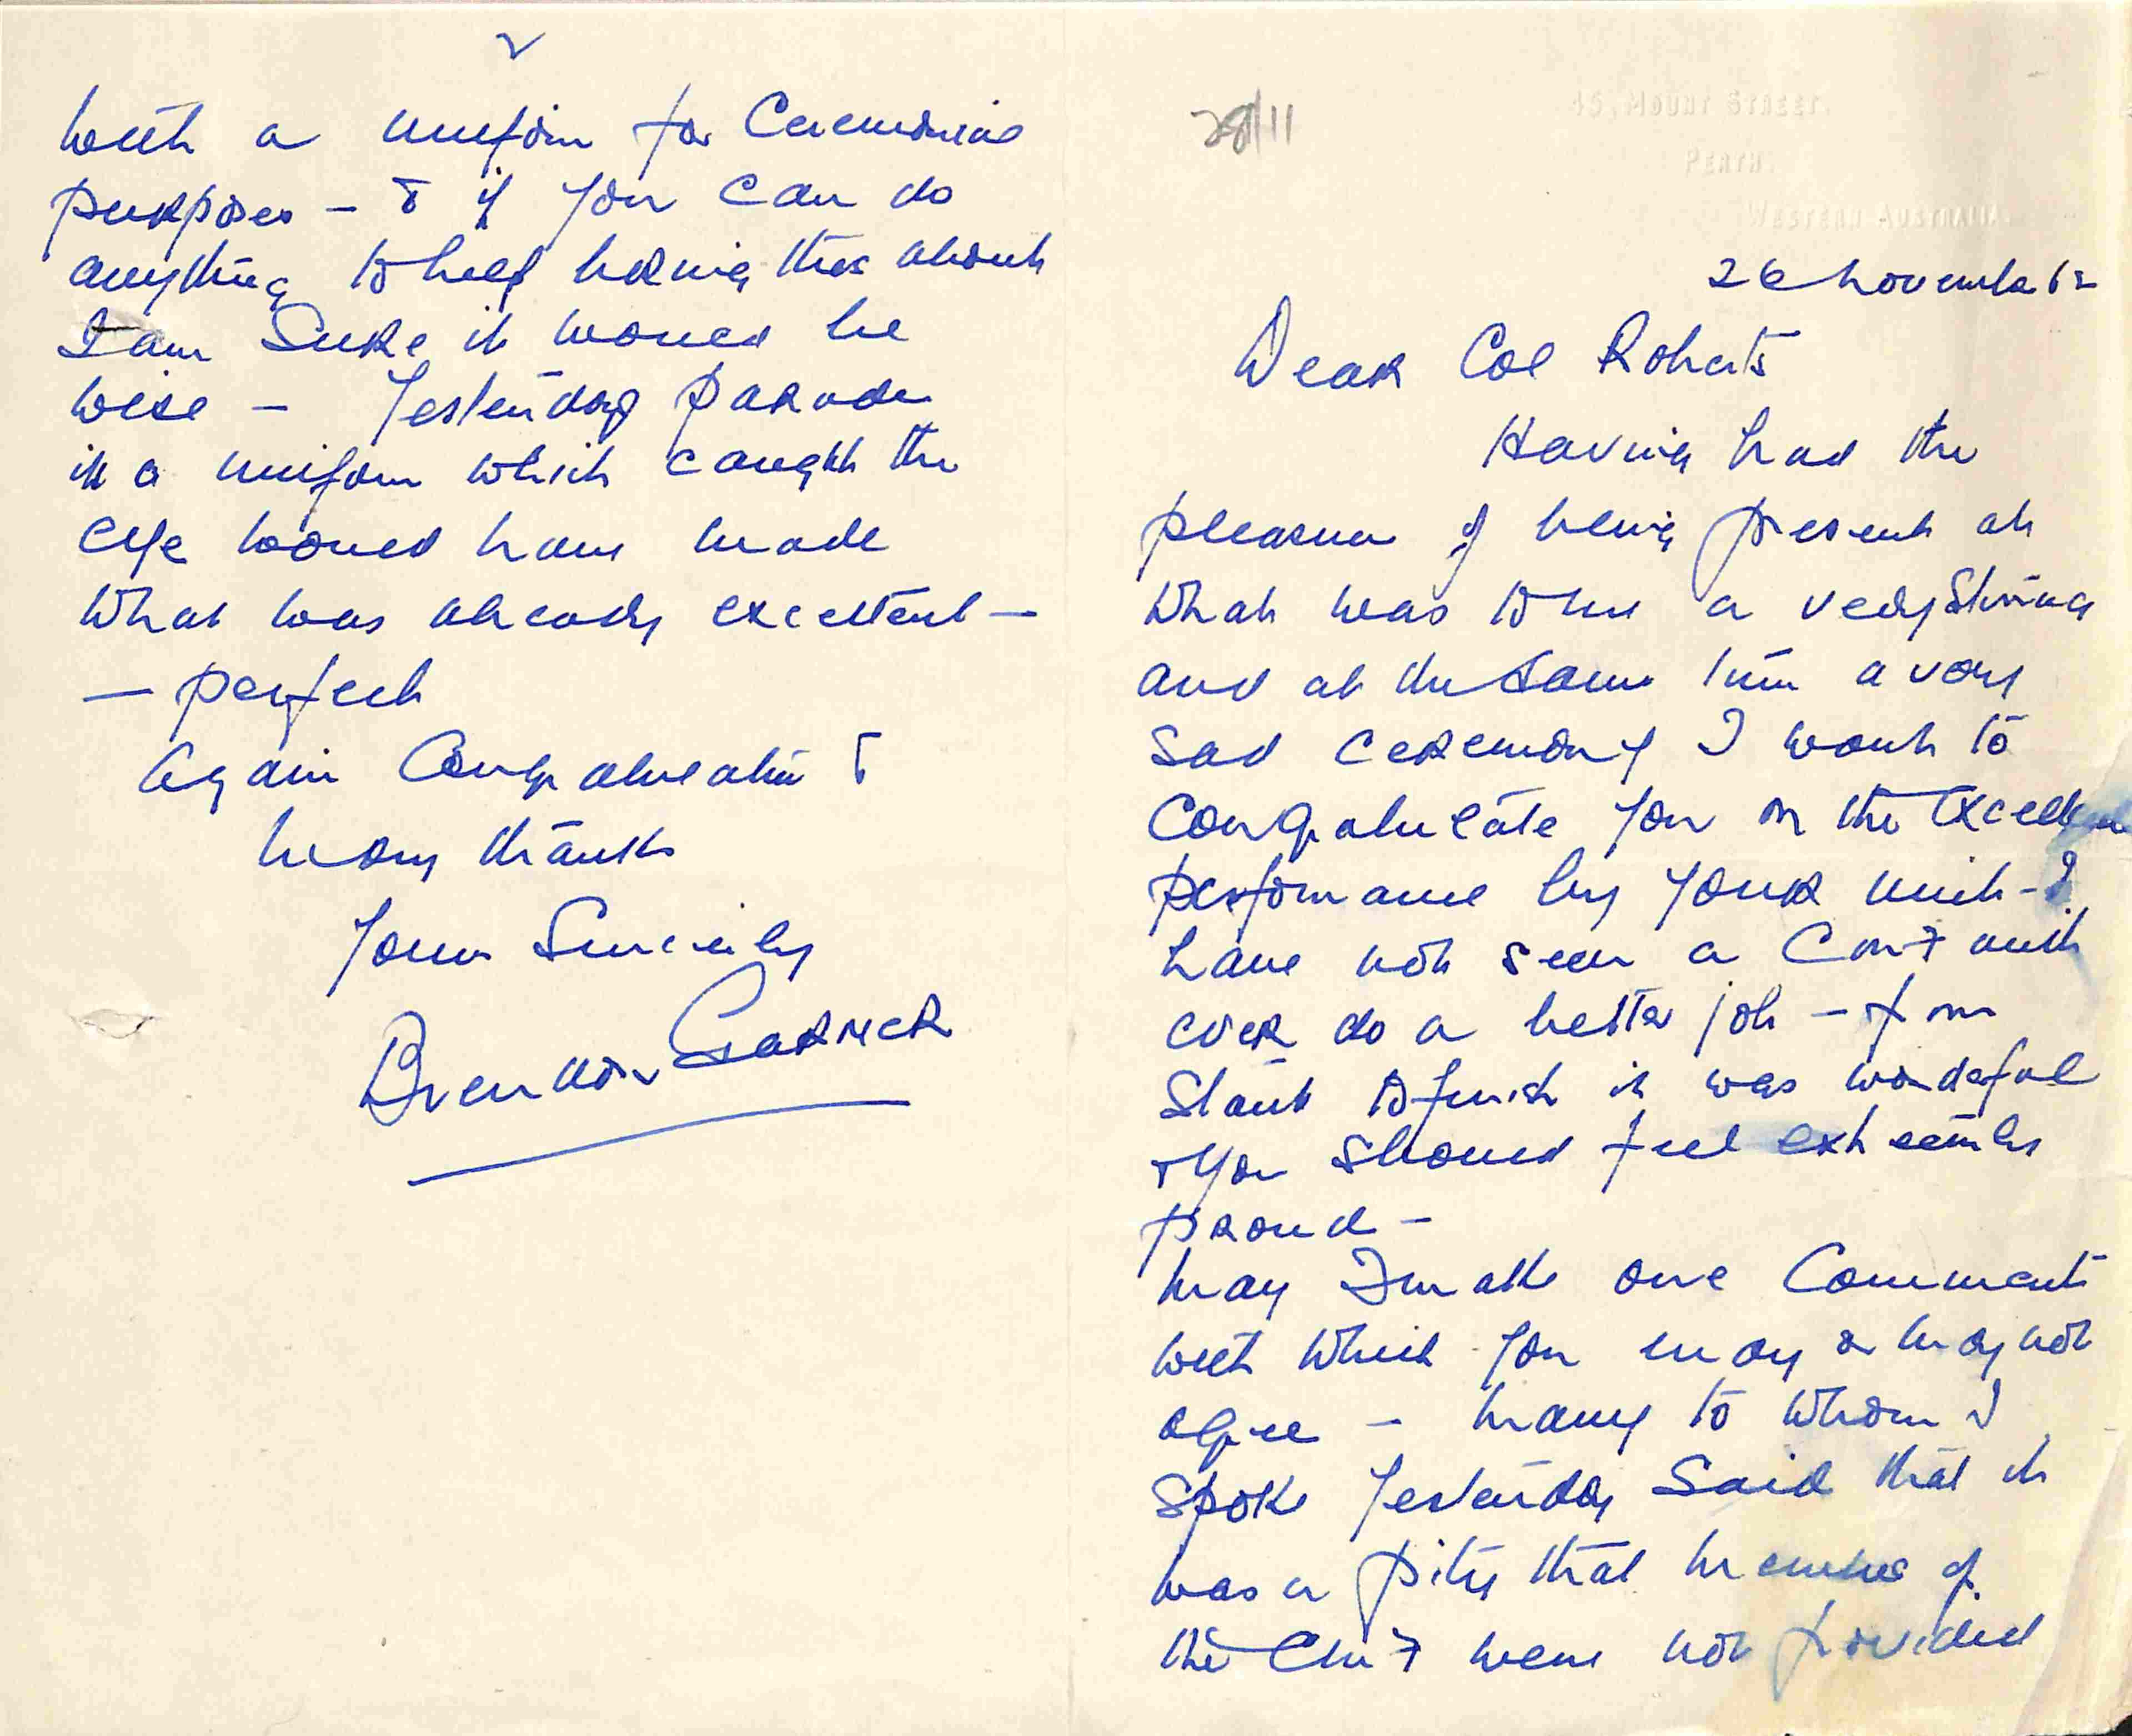 28/11
45, MOUNT STREET.
PERTH.
WESTERN AUSTRALIA.
26 November 62
Dear Col Roberts
Having had the
pleasure of being present at
what was to me a very stirring
and at the same time a very
sad ceremony I want to
congratulate you on the excellent
performance by your unit - I
have not seen a CMF unit
ever do a better job - from
start to finish it was wonderful
& you should feel extremely
proud -
May I make one comment
with which you may or may not
agree - many to whom I
spoke yesterday said that it
was a pity that members of
the were not provided
2
with a uniform for Ceremonial
purposes - & if you can do
anything to help bring this about
I am sure it would be
wise - Yesterday parade
in a uniform which caught the
eye would have made
what was already excellent -
- perfect
Again Congratulation &
many thanks
Yours Sincerely